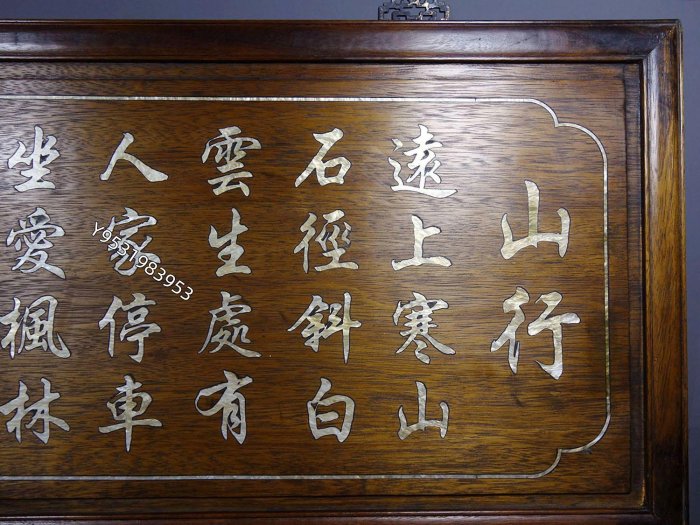 山行
遠上寒山
石徑斜白
雲生處有
人家停車
坐愛楓林
Y9531983953